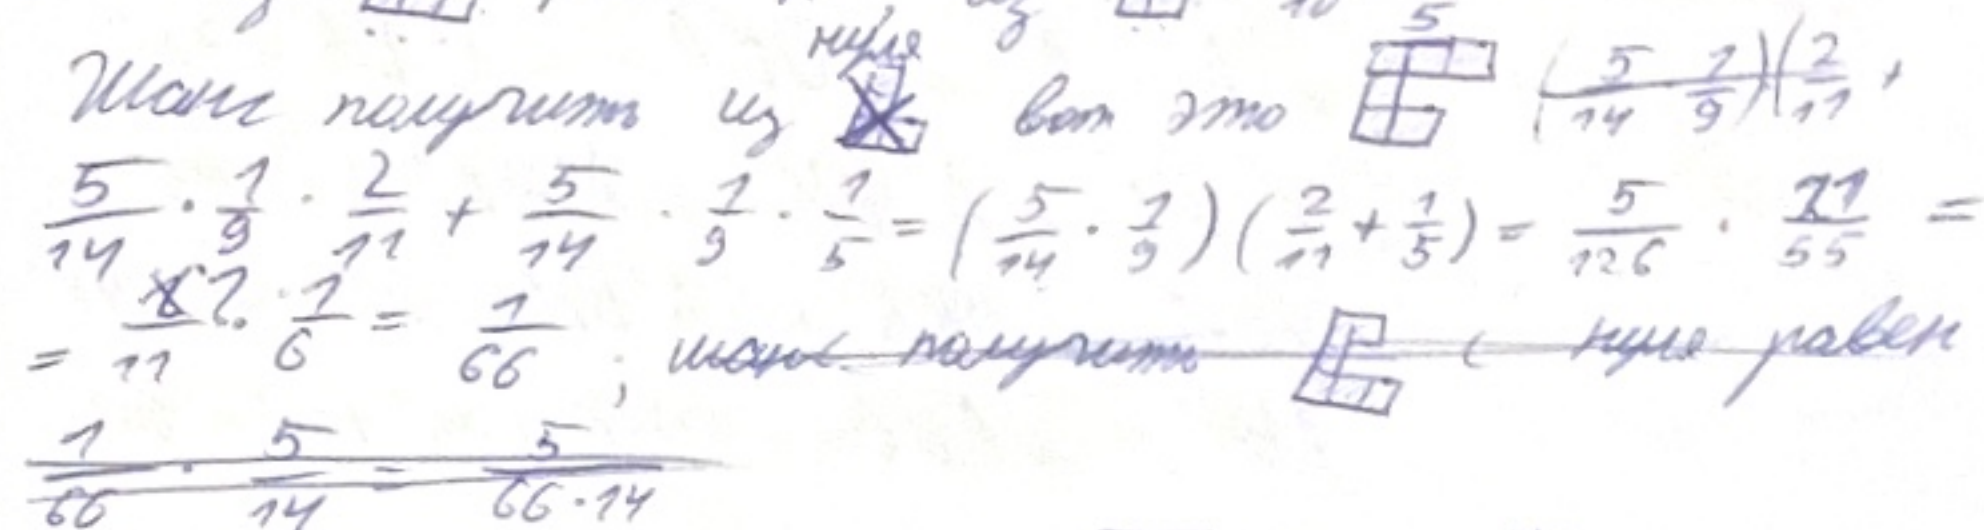 нуля
5
Шанс получить из вот это (5/14 · 1/9)(2/11 +
5/14 · 1/9 · 2/11 + 5/14 · 1/9 · 1/5 = (5/14 · 1/9)(2/11 + 1/5) = 5/126 · 21/55 =
= 1/11 · 1/6 = 1/66 ; шанс получить с нуля равен
1/66 · 5/14 = 5/66·14